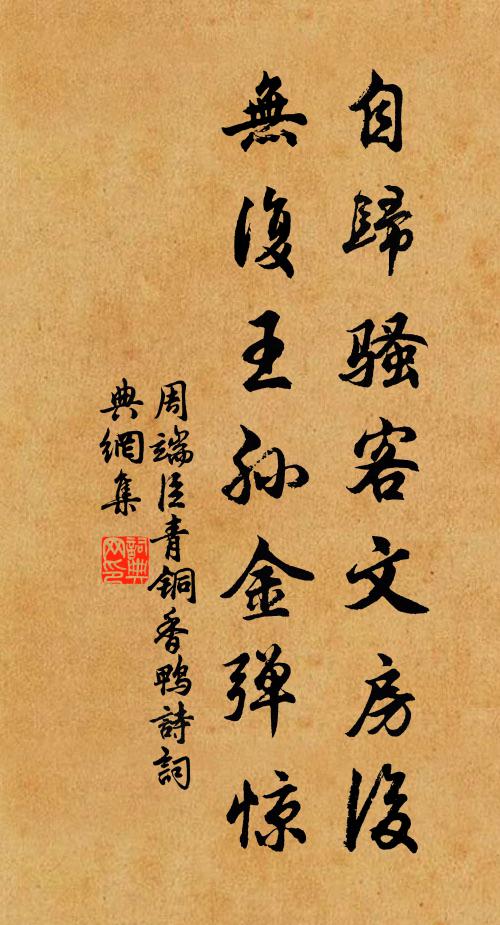 自歸騷客文房後
無復王孫金彈惊
周端臣青铜香鴨詩詞
典網集
詞典網印